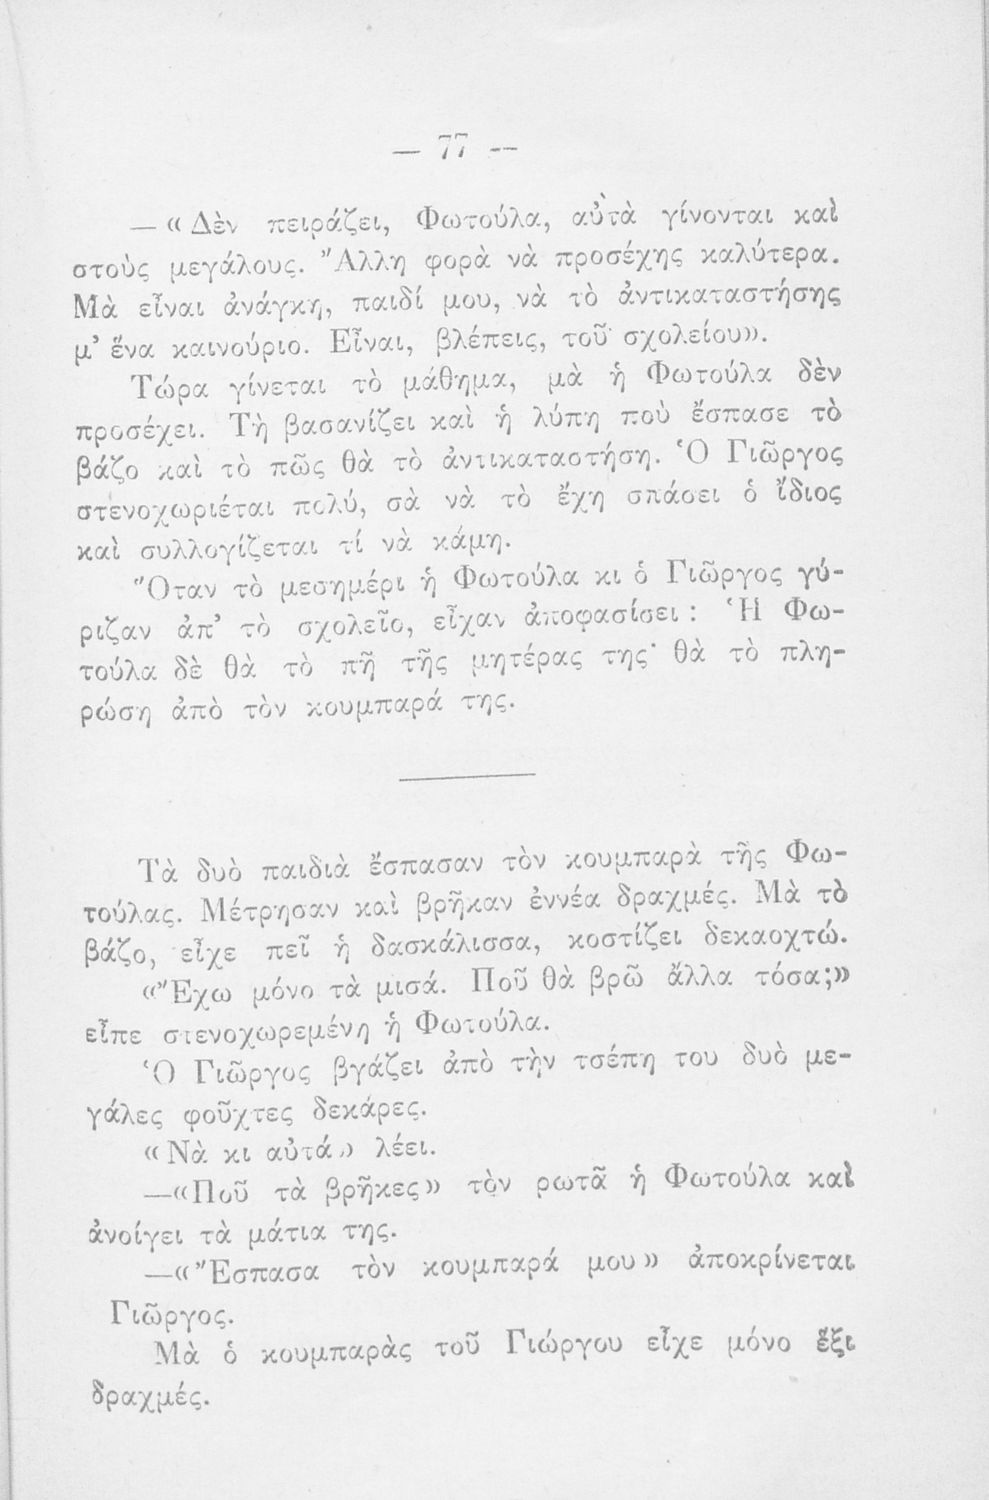 — 77 —
—« Δὲν πειράζει, Φωτούλα, αὐτὰ γίνονται καὶ
στοὺς μεγάλους. Ἄλλη φορὰ νὰ προσέχης καλύτερα.
Μὰ εἶναι ἀνάγκη, παιδί μου, νὰ τὸ ἀντικαταστήσης
μ’ ἕνα καινούριο. Εἶναι, βλέπεις, τοῦ σχολείου».
Τώρα γίνεται τὸ μάθημα, μὰ ἡ Φωτούλα δὲν
προσέχει. Τὴ βασανίζει καὶ ἡ λύπη ποὺ ἔσπασε τὸ
βάζο καὶ τὸ πῶς θὰ τὸ ἀντικαταστήση. Ὁ Γιῶργος
στενοχωριέται πολύ, σὰ νὰ τὸ ἔχη σπάσει ὁ ἴδιος
καὶ συλλογίζεται τί νὰ κάμη.
Ὅταν τὸ μεσημέρι ἡ Φωτούλα κι ὁ Γιῶργος γύ-
ριζαν ἀπ’ τὸ σχολεῖο, εἶχαν ἀποφασίσει : Ἡ Φω-
τούλα δὲ θὰ τὸ πῆ τῆς μητέρας της· θὰ τὸ πλη-
ρώση ἀπὸ τὸν κουμπαρά της.
Τὰ δυὸ παιδιὰ ἔσπασαν τὸν κουμπαρὰ τῆς Φω-
τούλας. Μέτρησαν καὶ βρῆκαν ἐννέα δραχμές. Μὰ τὸ
βάζο, εἶχε πεῖ ἡ δασκάλισσα, κοστίζει δεκαοχτώ.
«Ἔχω μόνο τὰ μισά. Ποῦ θὰ βρῶ ἄλλα τόσα;»
εἶπε στενοχωρεμένη ἡ Φωτούλα.
Ὁ Γιῶργος βγάζει ἀπὸ τὴν τσέπη του δυὸ με-
γάλες φοῦχτες δεκάρες.
« Νὰ κι αὐτά » λέει.
—«Ποῦ τὰ βρῆκες» τὸν ρωτᾶ ἡ Φωτούλα καὶ
ἀνοίγει τὰ μάτια της.
—«Ἔσπασα τὸν κουμπαρά μου» ἀποκρίνεται
Γιῶργος.
Μὰ ὁ κουμπαρὰς τοῦ Γιώργου εἶχε μόνο ἕξι
δραχμές.